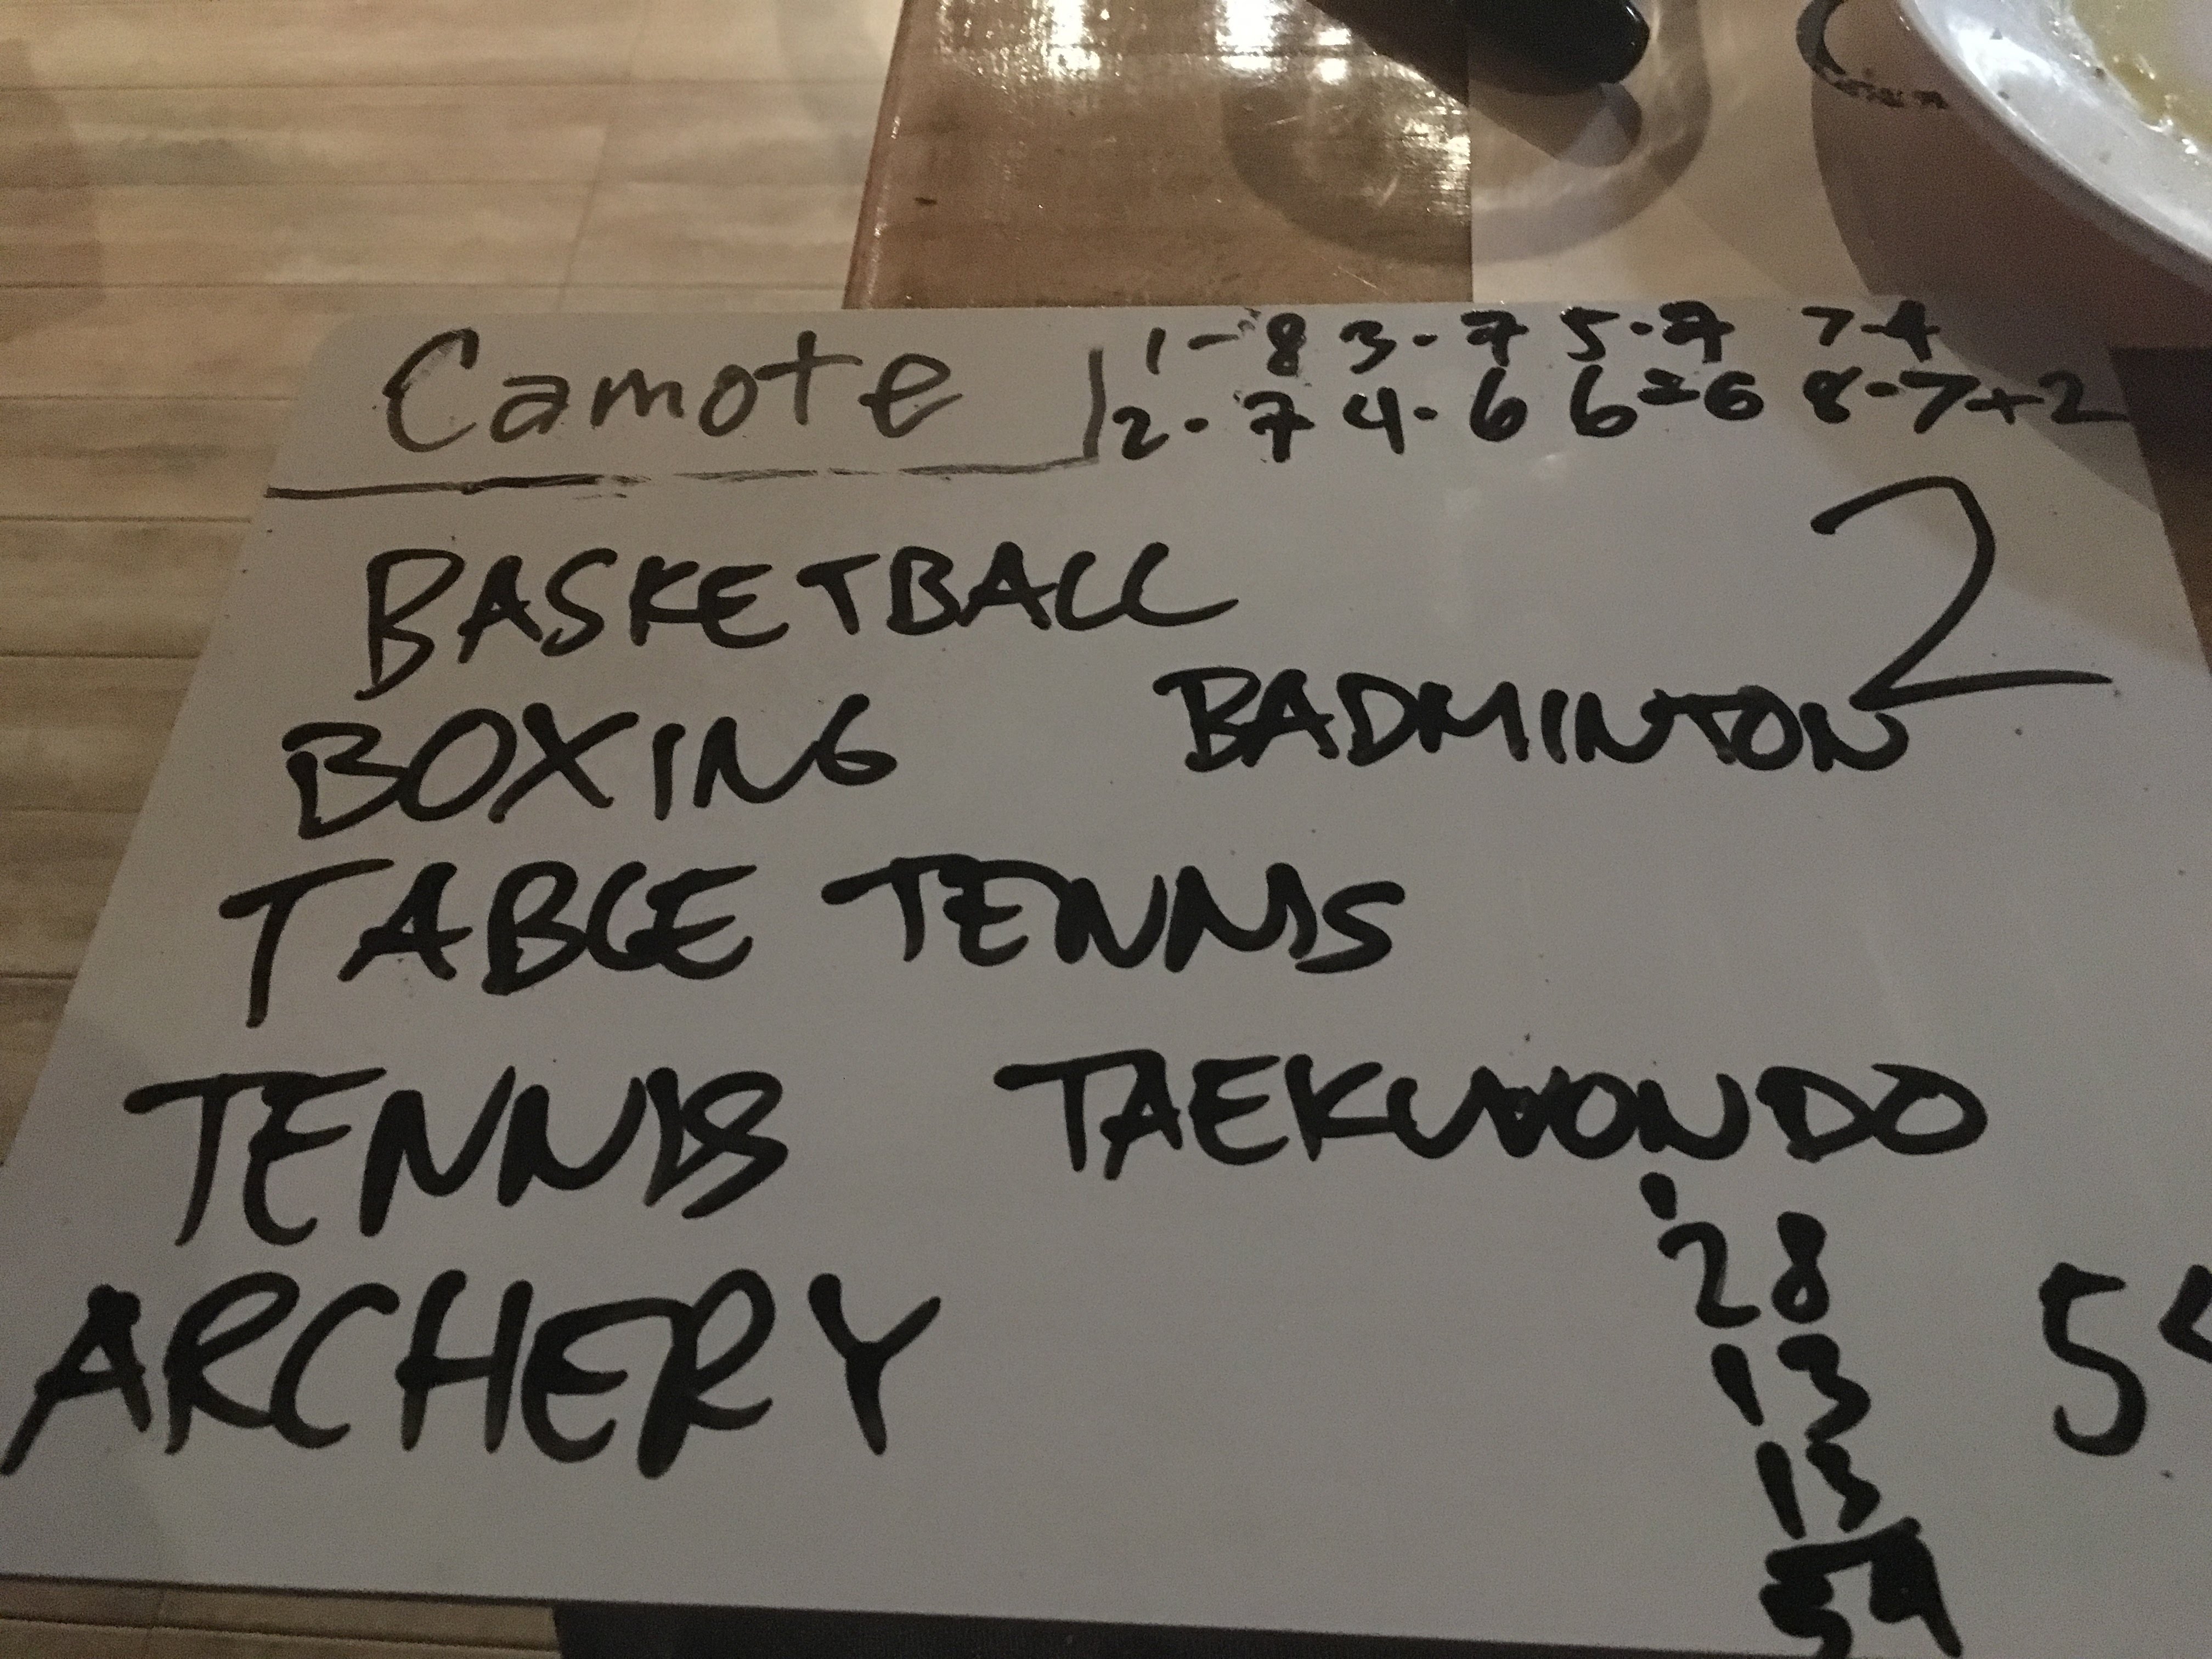 Camote
1-8 3-7 5-7 7-4
2-7 4-6 6-6 8-7+2
BASKETBALL
2
BOXING BADMINTON
TABLE TENNIS
TENNIS TAEKWONDO
ARCHERY
28
13
13
54